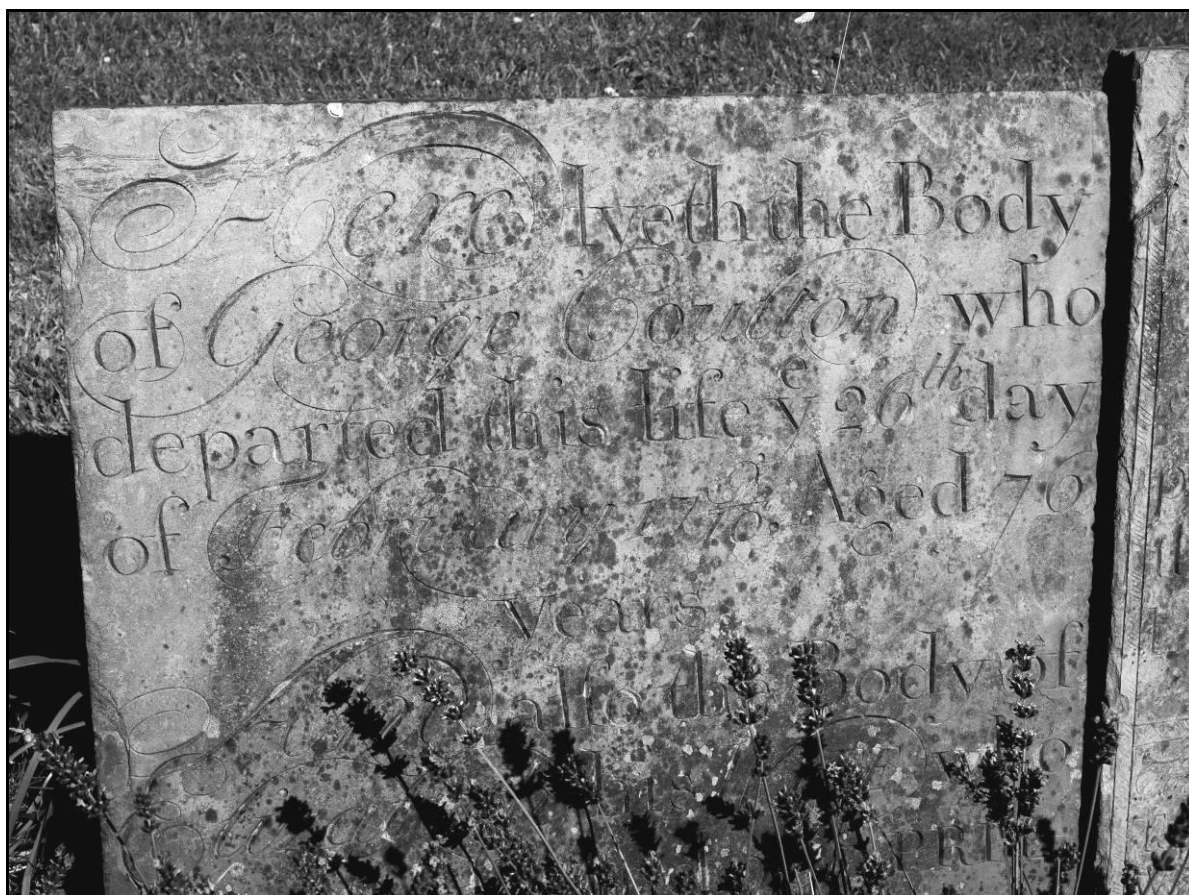 Here lyeth the Body
of George Coulton who
departed this life yᵉ 26ᵗʰ day
of February Aged 70
years
And also the Body of
his who